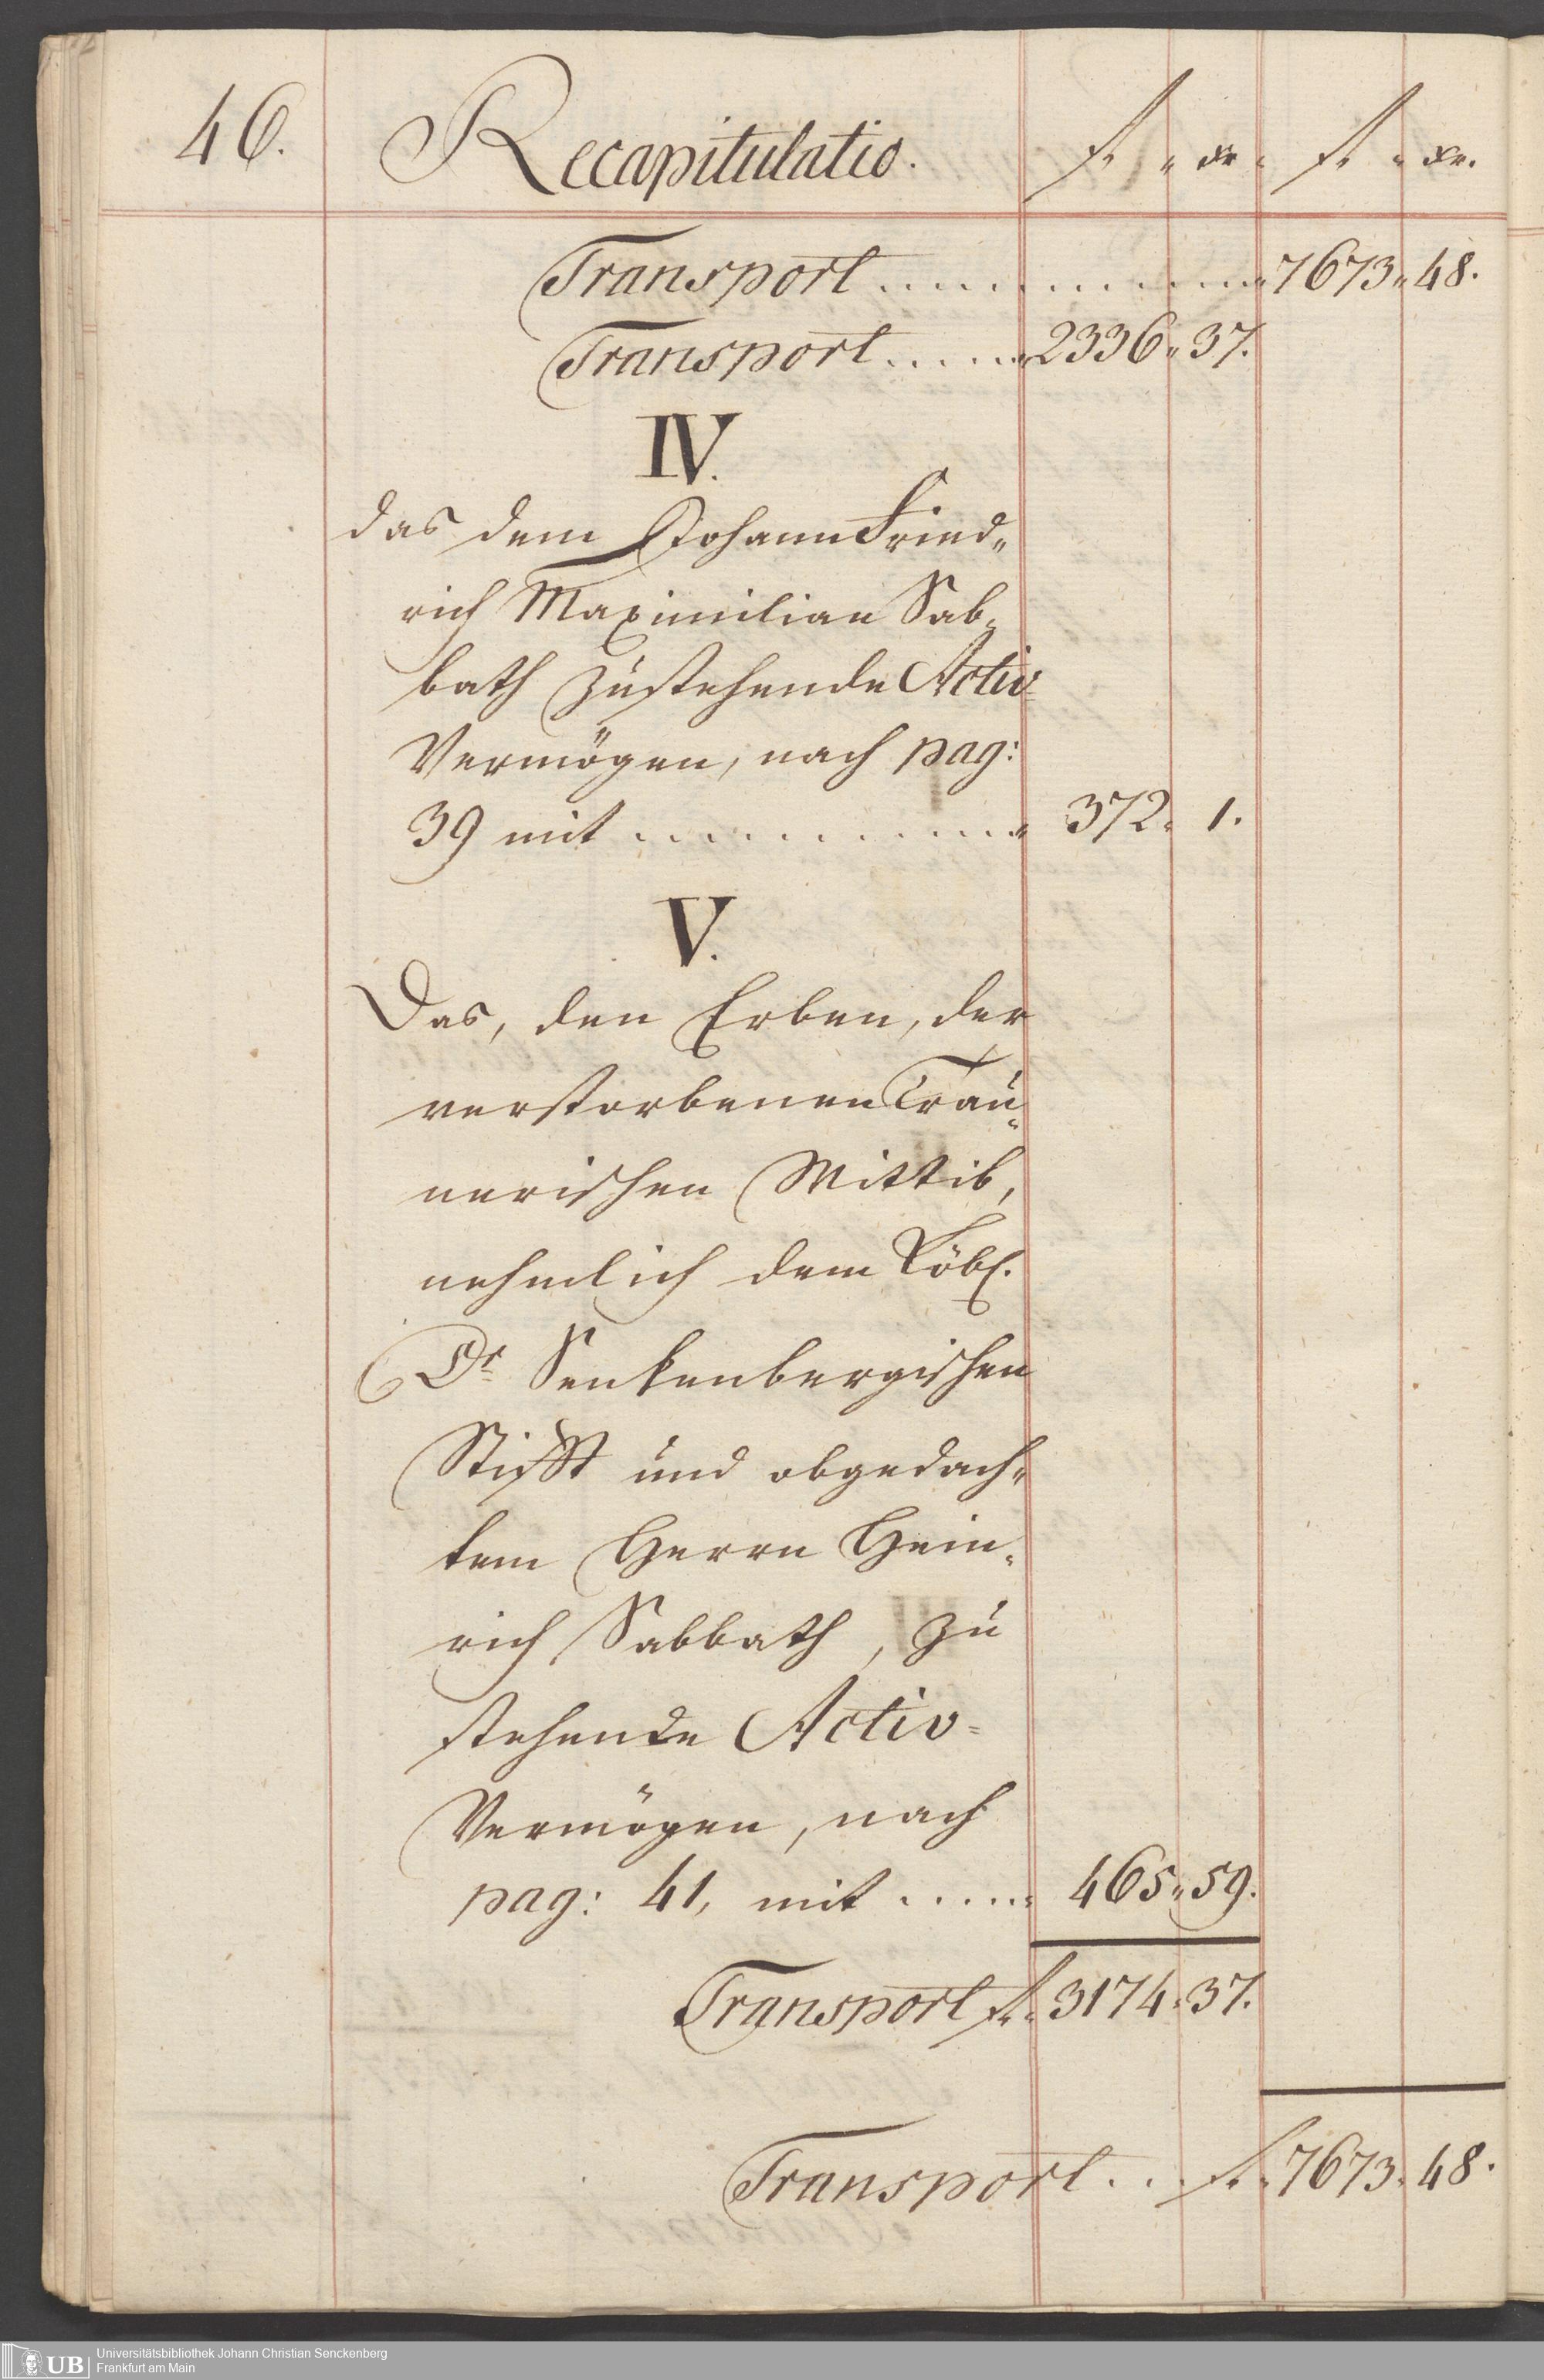 46. Recapitulatio. fl. xr. fl. xr.
Transport ............ 7673. 48.
Transport ...... 2336. 37.
IV.
das dem Johann Fried-
rich Maximilian Sab-
bath zustehende Activ
Vermögen, nach pag:
39 mit ............ 372. 1.
V.
Das, den Erben, der
verstorbenen Trau-
nerischen Wittib,
nehmlich dem Löbl.
Dr Senkenbergischen
Stifft und obgedach-
tem Herrn Hein-
rich Sabbath, zu
stehende Activ-
Vermögen, nach
pag: 41, mit ...... 465. 59.
Transport fl. 3174. 37.
Transport ... fl. 7673. 48.
UB Universitätsbibliothek Johann Christian Senckenberg
Frankfurt am Main